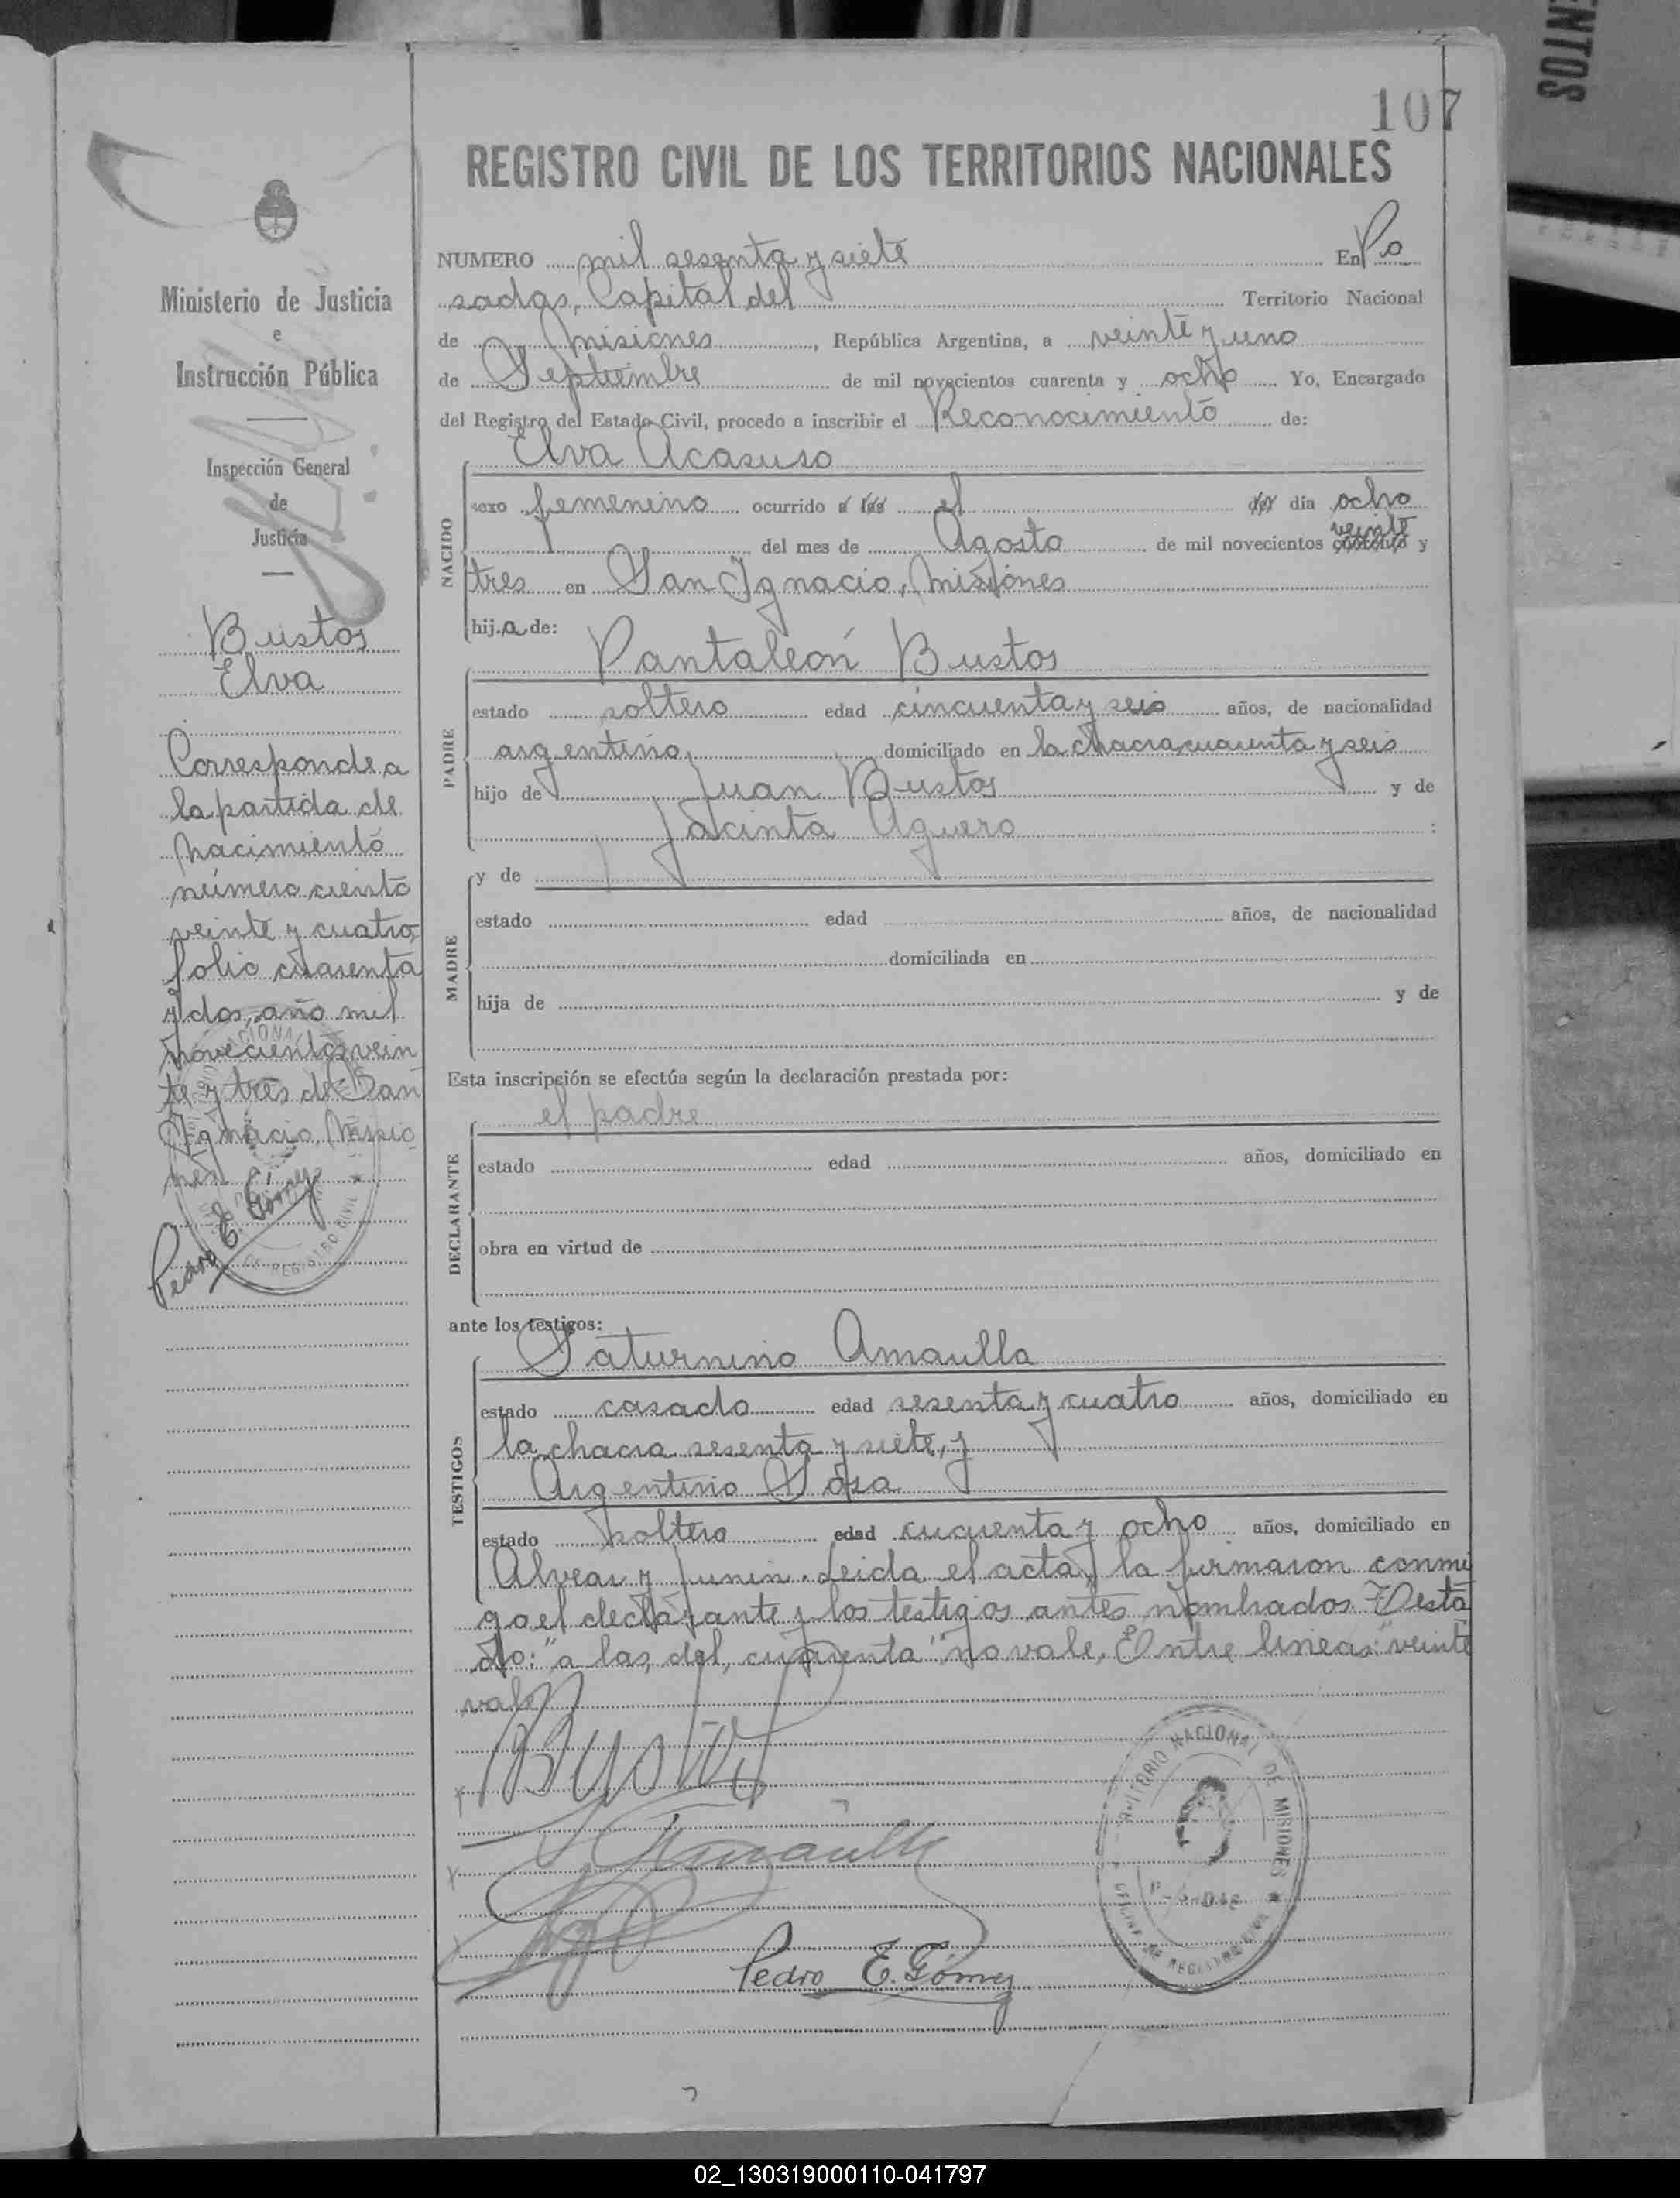 ENTOS
107
REGISTRO CIVIL DE LOS TERRITORIOS NACIONALES
Ministerio de Justicia
e
Instrucción Pública
Inspección General
de
Justicia
Bustos
Elva
Corresponde a
la partida de
nacimiento
número ciento
veinte y cuatro,
folio cuarenta
y dos, año mil
novecientos vein
te y tres de San
Ignacio, Misio
nes
Pedro E. Gómez
NUMERO mil sesenta y siete En Po
sadas, Capital del Territorio Nacional
de Misiones, República Argentina, a veinte y uno
de Septiembre de mil novecientos cuarenta y ocho Yo, Encargado
del Registro del Estado Civil, procedo a inscribir el Reconocimiento de:
Elva Acasuso
NACIDO
sexo femenino ocurrido a las el del día ocho
del mes de Agosto de mil novecientos cuarenta veinte y
tres en San Ignacio, Misiones
hija de:
Pantaleón Bustos
PADRE
estado soltero edad cincuenta y seis años, de nacionalidad
argentino, domiciliado en la chacra cuarenta y seis
hijo de Juan Bustos y de
Jacinta Aguero :
MADRE
y de
estado edad años, de nacionalidad
domiciliada en
hija de y de
Esta inscripción se efectúa según la declaración prestada por:
el padre
DECLARANTE
estado edad años, domiciliado en
obra en virtud de
ante los testigos:
Saturnino Amarilla
TESTIGOS
estado casado edad sesenta y cuatro años, domiciliado en
la chacra sesenta y siete, y
Argentino Sosa
estado soltero edad cuarenta y ocho años, domiciliado en
Alvear y Junin. Leida el acta, la firmaron conmi
go el declarante y los testigos antes nombrados. Testa
do: "a las, del, cuarenta" no vale, Entre lineas: "veinte
vale
Bustos
Amarilla
Pedro E. Gómez
TERRITORIO NACIONAL DE MISIONES
POSADAS
02_130319000110-041797